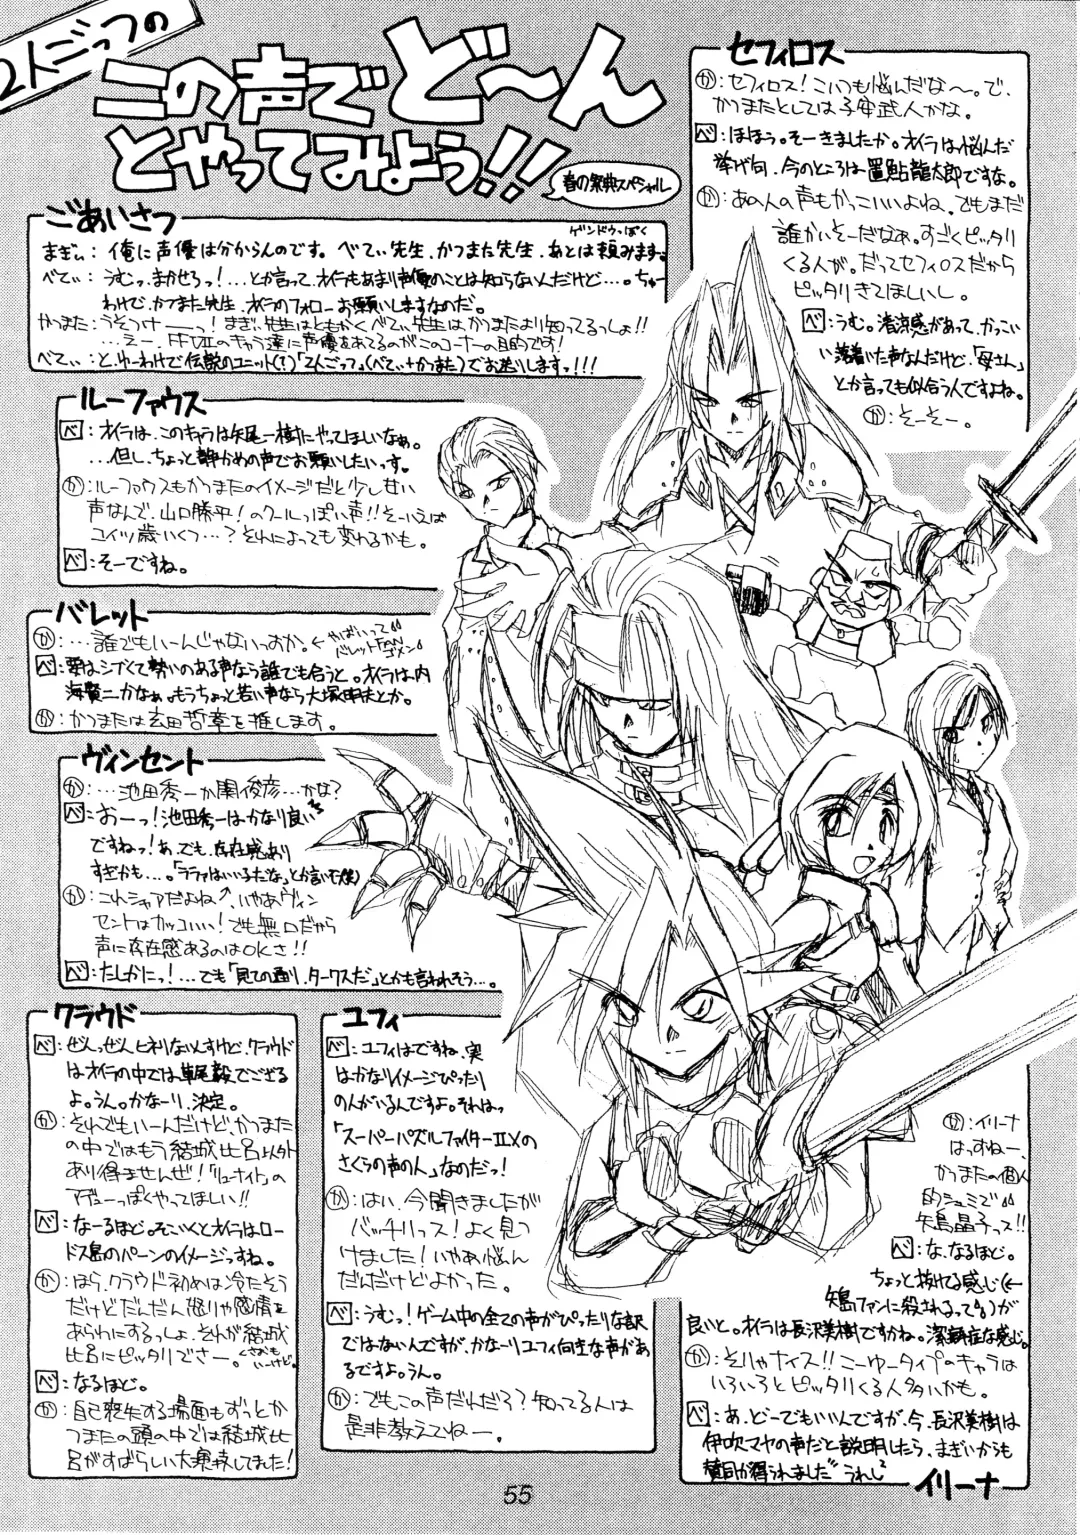 2人ごっつの
この声でど〜ん
とやってみよう!!
春の祭典スペシャル
ごあいさつ
ゲンドウっぽく
まぎぃ:俺に声優は分からんのです。べてぃ先生、かつまた先生、あとは頼みます。
べてぃ:うむっ、まかせろっ!…とか言って、オイラもあまり声優のことは知らないんだけど…。ちゅー
わけで、かつまた先生、オイラのフォローお願いしますなのだ。
かつまた:うそつけーーっ!まぎぃ先生はともかくべてぃ先生はかつまたより知ってるっしょ!!
…えー、FFⅦのキャラ達に声優をあてるのがこのコーナーの目的です!
べてぃ:と、ゆーわけで伝説のユニット(?)「2人ごっつ」(べてぃ+かつまた)でお送りしますっ!!!
ルーファウス
べ:オイラは、このキャラは矢尾一樹にやってほしいなぁ。
…但し、ちょっと静かめの声でお願いしたいっす。
か:ルーファウスもかつまたのイメージだと少し甘い
声なんで、山口勝平!のクールっぽい声!!そーいえば
コイツ歳いくつ…?それによっても変わるかも。
べ:そーですね。
バレット
か:…誰でもいーんじゃないっすか。←やばいって
バレットFANゴメン
べ:要はシブくて勢いのある声なら誰でも合うと。オイラは、内
海賢二かなぁ。もうちょっと若い声なら大塚明夫とか。
か:かつまたは玄田哲章を推します。
ヴィンセント
か:…池田秀一か関俊彦…かな?
べ:おーっ!池田秀一はかなり良い
ですねっ!あ、でも、存在感あり
すぎかも…。「ララァはいい子だな」とか言いそ(笑)
か:これシャアだよね、いやあヴィン
セントはカッコいい!でも無口だから
声に存在感あるのはOKさ!!
べ:たしかにっ!…でも「見ての通り、タークスだ」とかも言われそう…。
クラウド
べ:ぜんっぜんヒネりないんすけど、クラウド
はオイラの中では草尾毅でござる
よ。うん。かなーり、決定。
か:それでもいーんだけど、かつまた
の中ではもう結城比呂以外
あり得ませんぜ!「リューナイト」の
アデューっぽくやってほしい!!
べ:なーるほど。そこいくとオイラはロー
ドス島のパーンのイメージっすね。
か:ほら、クラウド初めは冷たそう
だけどだんだん怒りや感情を
あらわにするっしょ、それが結城
比呂にピッタリでさー。
べ:なるほど。
か:自己喪失する場面もずっとか
つまたの頭の中では結城比
呂がすばらしい大演技してました!
ユフィ
べ:ユフィはですね、実
はかなりイメージぴったり
の人がいるんですよ。それはっ
「スーパーパズルファイターⅡXの
さくらの声の人」なのだっ!
か:はい、今聞きましたが
バッチリっス!よく見つ
けました!いやあ悩ん
だんだけどよかった。
べ:うむっ!ゲーム中の全ての声がぴったりな訳
ではないんですが、かなーりユフィ向きな声があ
るですよ。うん。
か:でもこの声だれだろ?知ってる人は
是非教えてねー。
セフィロス
か:セフィロス!こいつも悩んだな〜。で、
かつまたとしては子安武人かな。
べ:ほほう。そーきましたか。オイラは悩んだ
挙げ句、今のところは置鮎龍太郎ですな。
か:あの人の声もかっこいいよね、でもまだ
誰かいそーだなぁ。すごくピッタリ
くる人が。だってセフィロスだから
ピッタリきてほしいし。
べ:うむ。清涼感があって、かっこい
い落着いた声なんだけど、「母さん」
とか言っても似合う人ですよね。
か:そーそー。
か:イリーナ
はっすねー、
かつまたの個人
的シュミで
矢島晶子っス!!
べ:な、なるほど。
ちょっと抜けてる感じ(←
矢島ファンに殺されるって)が
良いと。オイラは長沢美樹ですかね。潔癖症な感じ。
か:そりゃナイス!!こーゆータイプのキャラは
いろいろとピッタリくる人多いかも。
べ:あ、どーでもいいんですが、今、長沢美樹は
伊吹マヤの声だと説明したら、まぎぃからも
賛同が得られました うれし
イリーナ
55